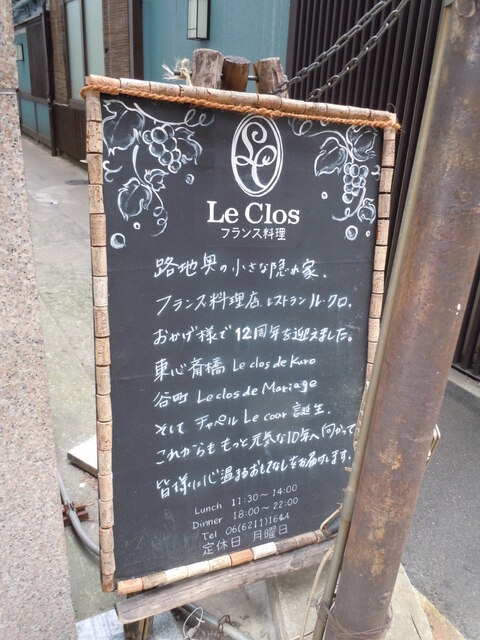 Le Clos
フランス料理
路地奥の小さな隠れ家、
フランス料理店 レストラン ル・クロ。
おかげ様で12周年を迎えました。
東心斎橋 Le clos de Kuro
谷町 Le clos de Mariage
そして チャペル Le cour 誕生。
これからも もっと元気な10年へ向かって
皆様に心温まるおもてなしをお届けします。
Lunch 11:30～14:00
Dinner 18:00～22:00
Tel 06(6211)1644
定休日 月曜日